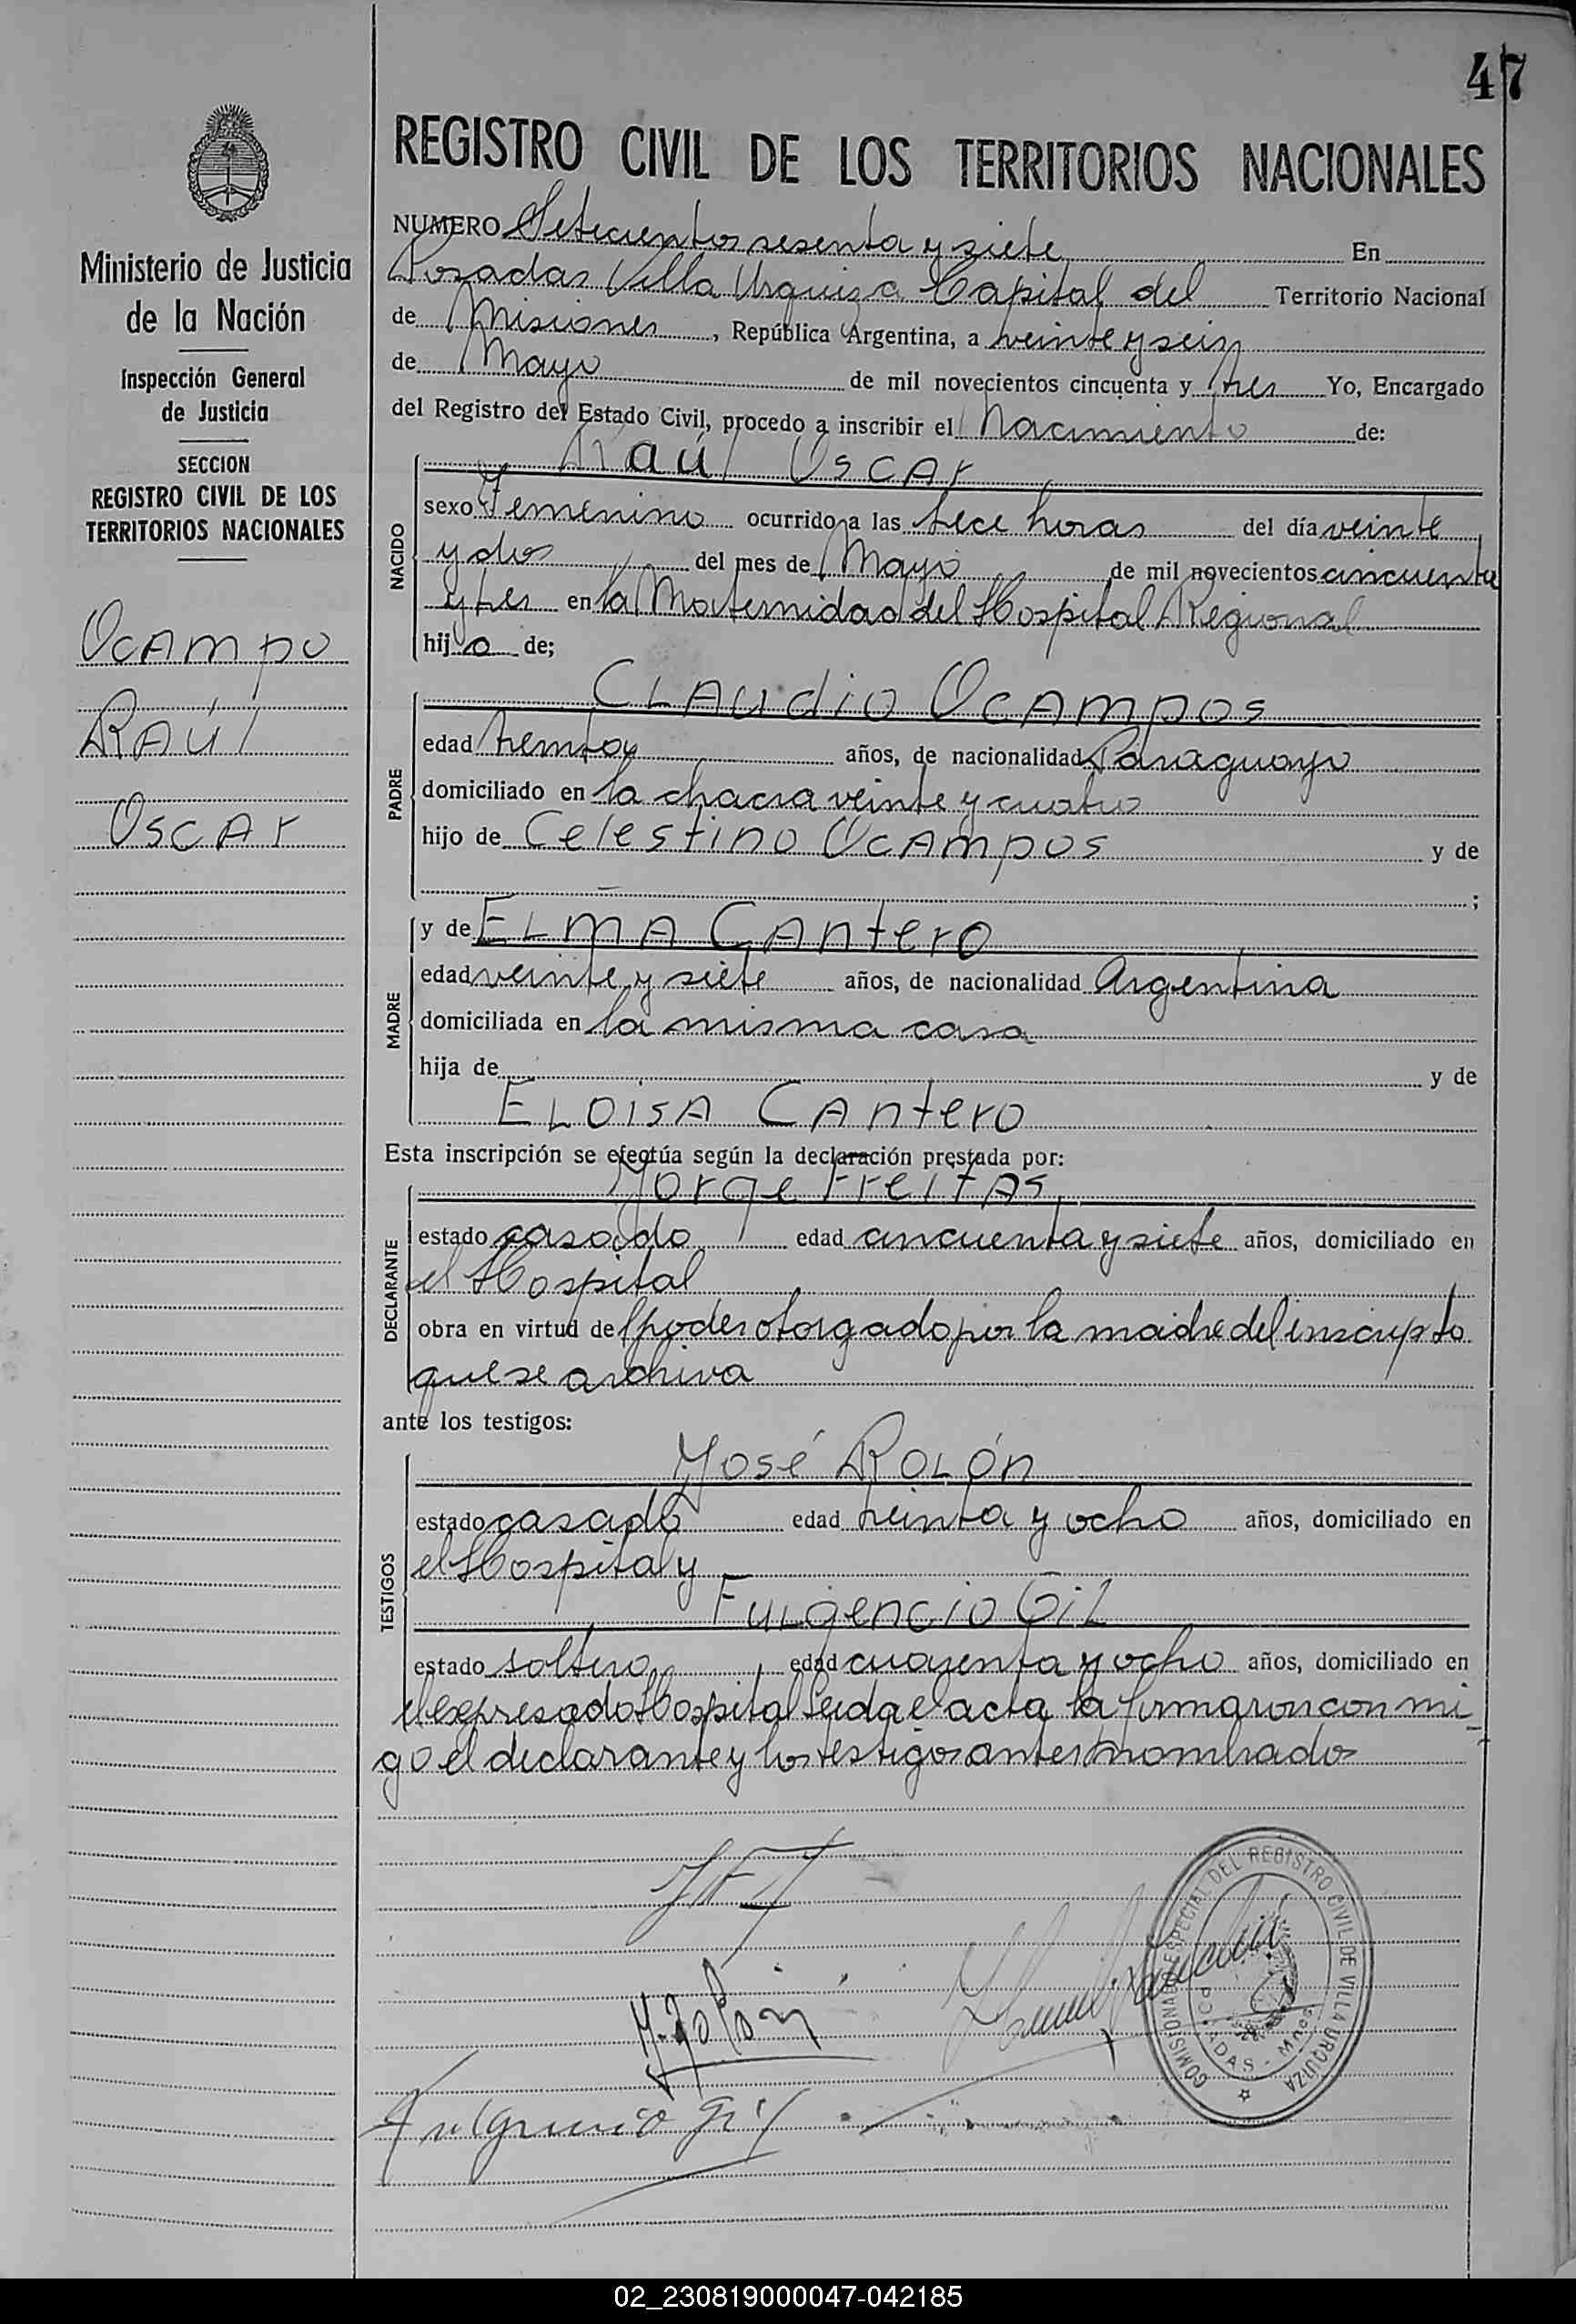 47
REGISTRO CIVIL DE LOS TERRITORIOS NACIONALES
Ministerio de Justicia
de la Nación
Inspección General
de Justicia
SECCION
REGISTRO CIVIL DE LOS
TERRITORIOS NACIONALES
Ocampo
Raúl
Oscar
NUMERO Setecientos sesenta y siete En
Posadas Villa Urquiza Capital del Territorio Nacional
de Misiones, República Argentina, a veinte y seis
de Mayo de mil novecientos cincuenta y tres Yo, Encargado
del Registro del Estado Civil, procedo a inscribir el Nacimiento de:
Raúl Oscar
NACIDO
sexo Femenino ocurrido a las trece horas del día veinte
y dos del mes de Mayo de mil novecientos cincuenta
y tres en la Maternidad del Hospital Regional
hijo de;
PADRE
Claudio Ocampos
edad treinta y años, de nacionalidad Paraguayo
domiciliado en la chacra veinte y cuatro
hijo de Celestino Ocampos y de
;
MADRE
y de Elma Cantero
edad veinte y siete años, de nacionalidad Argentina
domiciliada en la misma casa
hija de y de
Eloisa Cantero
Esta inscripción se efectúa según la declaración prestada por:
DECLARANTE
Jorge Freitas
estado casado edad cincuenta y siete años, domiciliado en
el Hospital
obra en virtud del poder otorgado por la madre del inscripto
que se archiva
ante los testigos:
TESTIGOS
José Rolón
estado casado edad treinta y ocho años, domiciliado en
el Hospital y
Fulgencio Gil
estado soltero edad cuarenta y ocho años, domiciliado en
el expresado Hospital Leida el acta la firmaron con mi
go el declarante y los testigos antes nombrados
J. Rolón
Fulgencio Gil
COMISIONADO ESPECIAL DEL REGISTRO CIVIL DE VILLA URQUIZA
POSADAS - Mnes
02_230819000047-042185